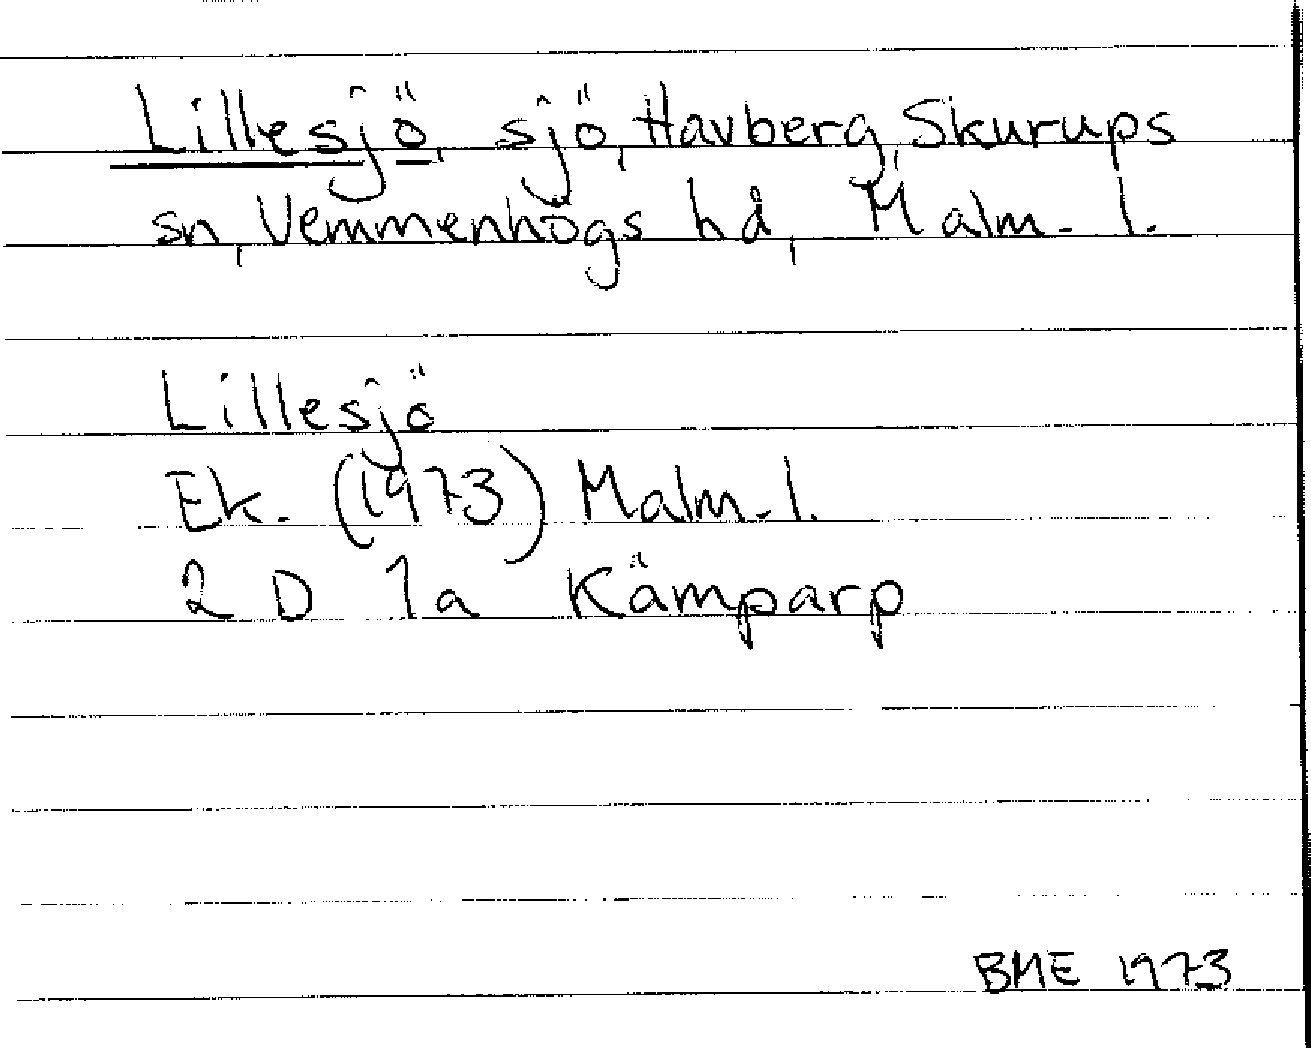 Lillesjö, sjö, Havberg, Skurups
sn, Vemmenhögs hd, Malm. l.
Lillesjö
Ek. (1973) Malm. l.
2 D 1a Kämparp
BME 1973